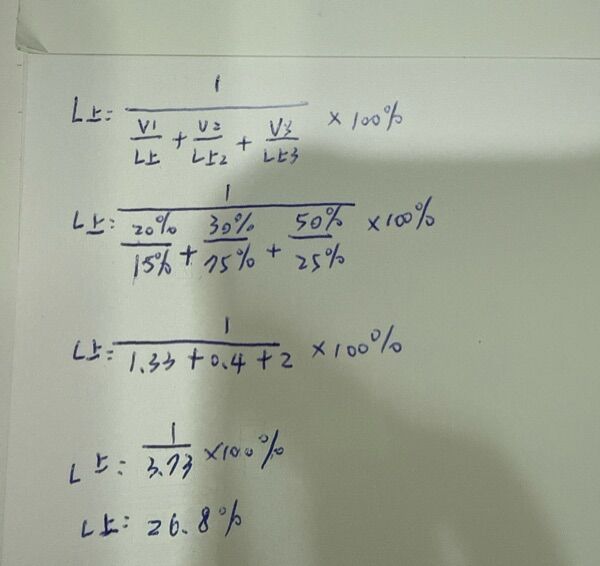 L上= 1 / (V1/L上 + V2/L上2 + V3/L上3) ×100%
L上= 1 / (20%/15% + 30%/75% + 50%/25%) ×100%
L上= 1 / (1.33+0.4+2) ×100%
L上= 1/3.73 ×100%
L上= 26.8%